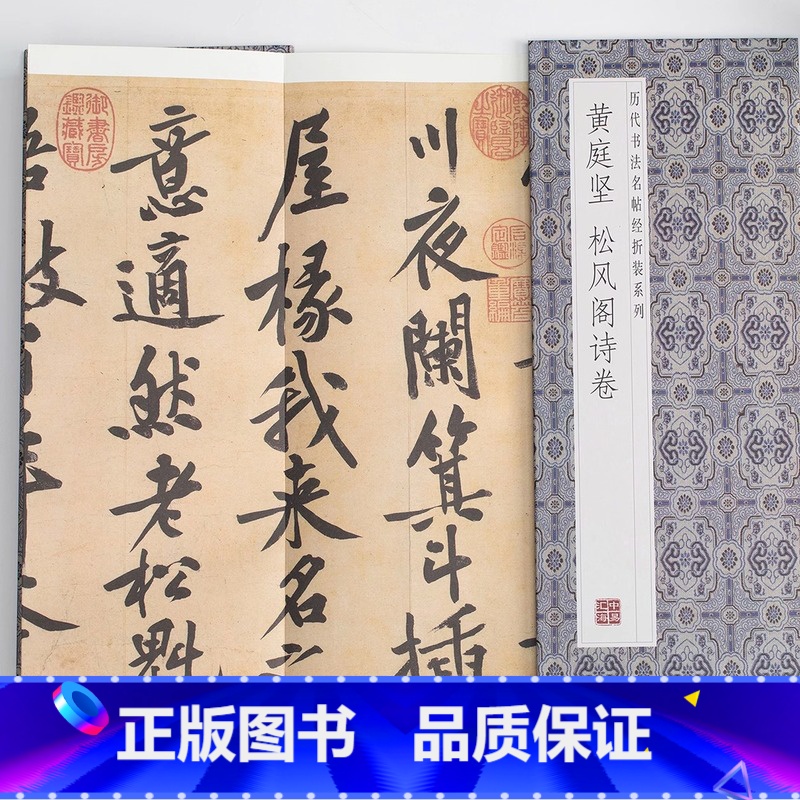 川夜闌箕斗插
屋椽我来名之
意適然老松魁
御書房鑑藏寶
历代书法名帖经折装系列
黄庭坚 松风阁诗卷
中昌汇海
正版图书 品质保证